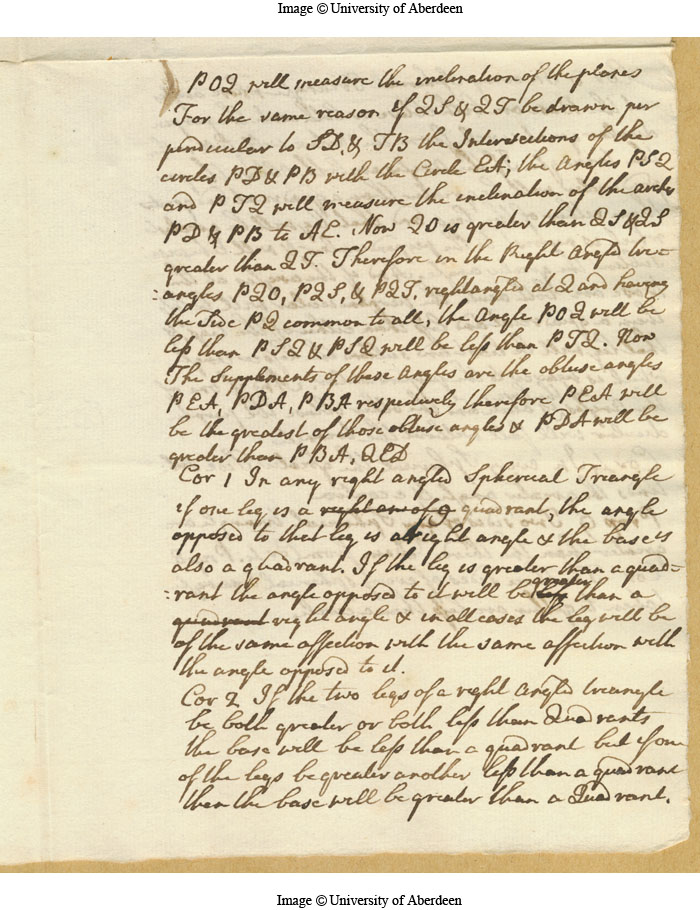 Image © University of Aberdeen
POQ will measure the inclination of the planes
For the same reason if QS & QT be drawn per
pendicular to SD, & TB the Intersections of the
circles PD & PB with the Circle EA; the Angles PSQ
and PTQ will measure the inclination of the arches
PD & PB to AE. Now QO is greater than QS & QS
greater than QT. Therefore in the Right Angled tri-
angles PQO, PQS, & PQT, rightangled at Q and having
the Side PQ common to all, the Angle POQ will be
less than PSQ & PSQ will be less than PTQ. Now
The Supplements of these Angles are the obtuse angles
PEA, PDA, PBA respectively therefore PEA will
be the greatest of those obtuse angles & PDA will be
greater than PBA, QED
Cor 1 In any right angled Spherical Triangle
if one leg is a right an of 9 quadrant, the angle
opposed to that leg is a right angle & the base is
also a quadrant. If the leg is greater than a quad-
rant the angle opposed to it will be less greater than a
quadrant right angle & in all cases the leg will be
of the same affection with the same affection with
the angle opposed to it.
Cor 2 If the two legs of a right angled triangle
be both greater or both less than Quadrants
the base will be less than a quadrant but if one
of the legs be greater another less than a quadrant
then the base will be greater than a Quadrant.
Image © University of Aberdeen